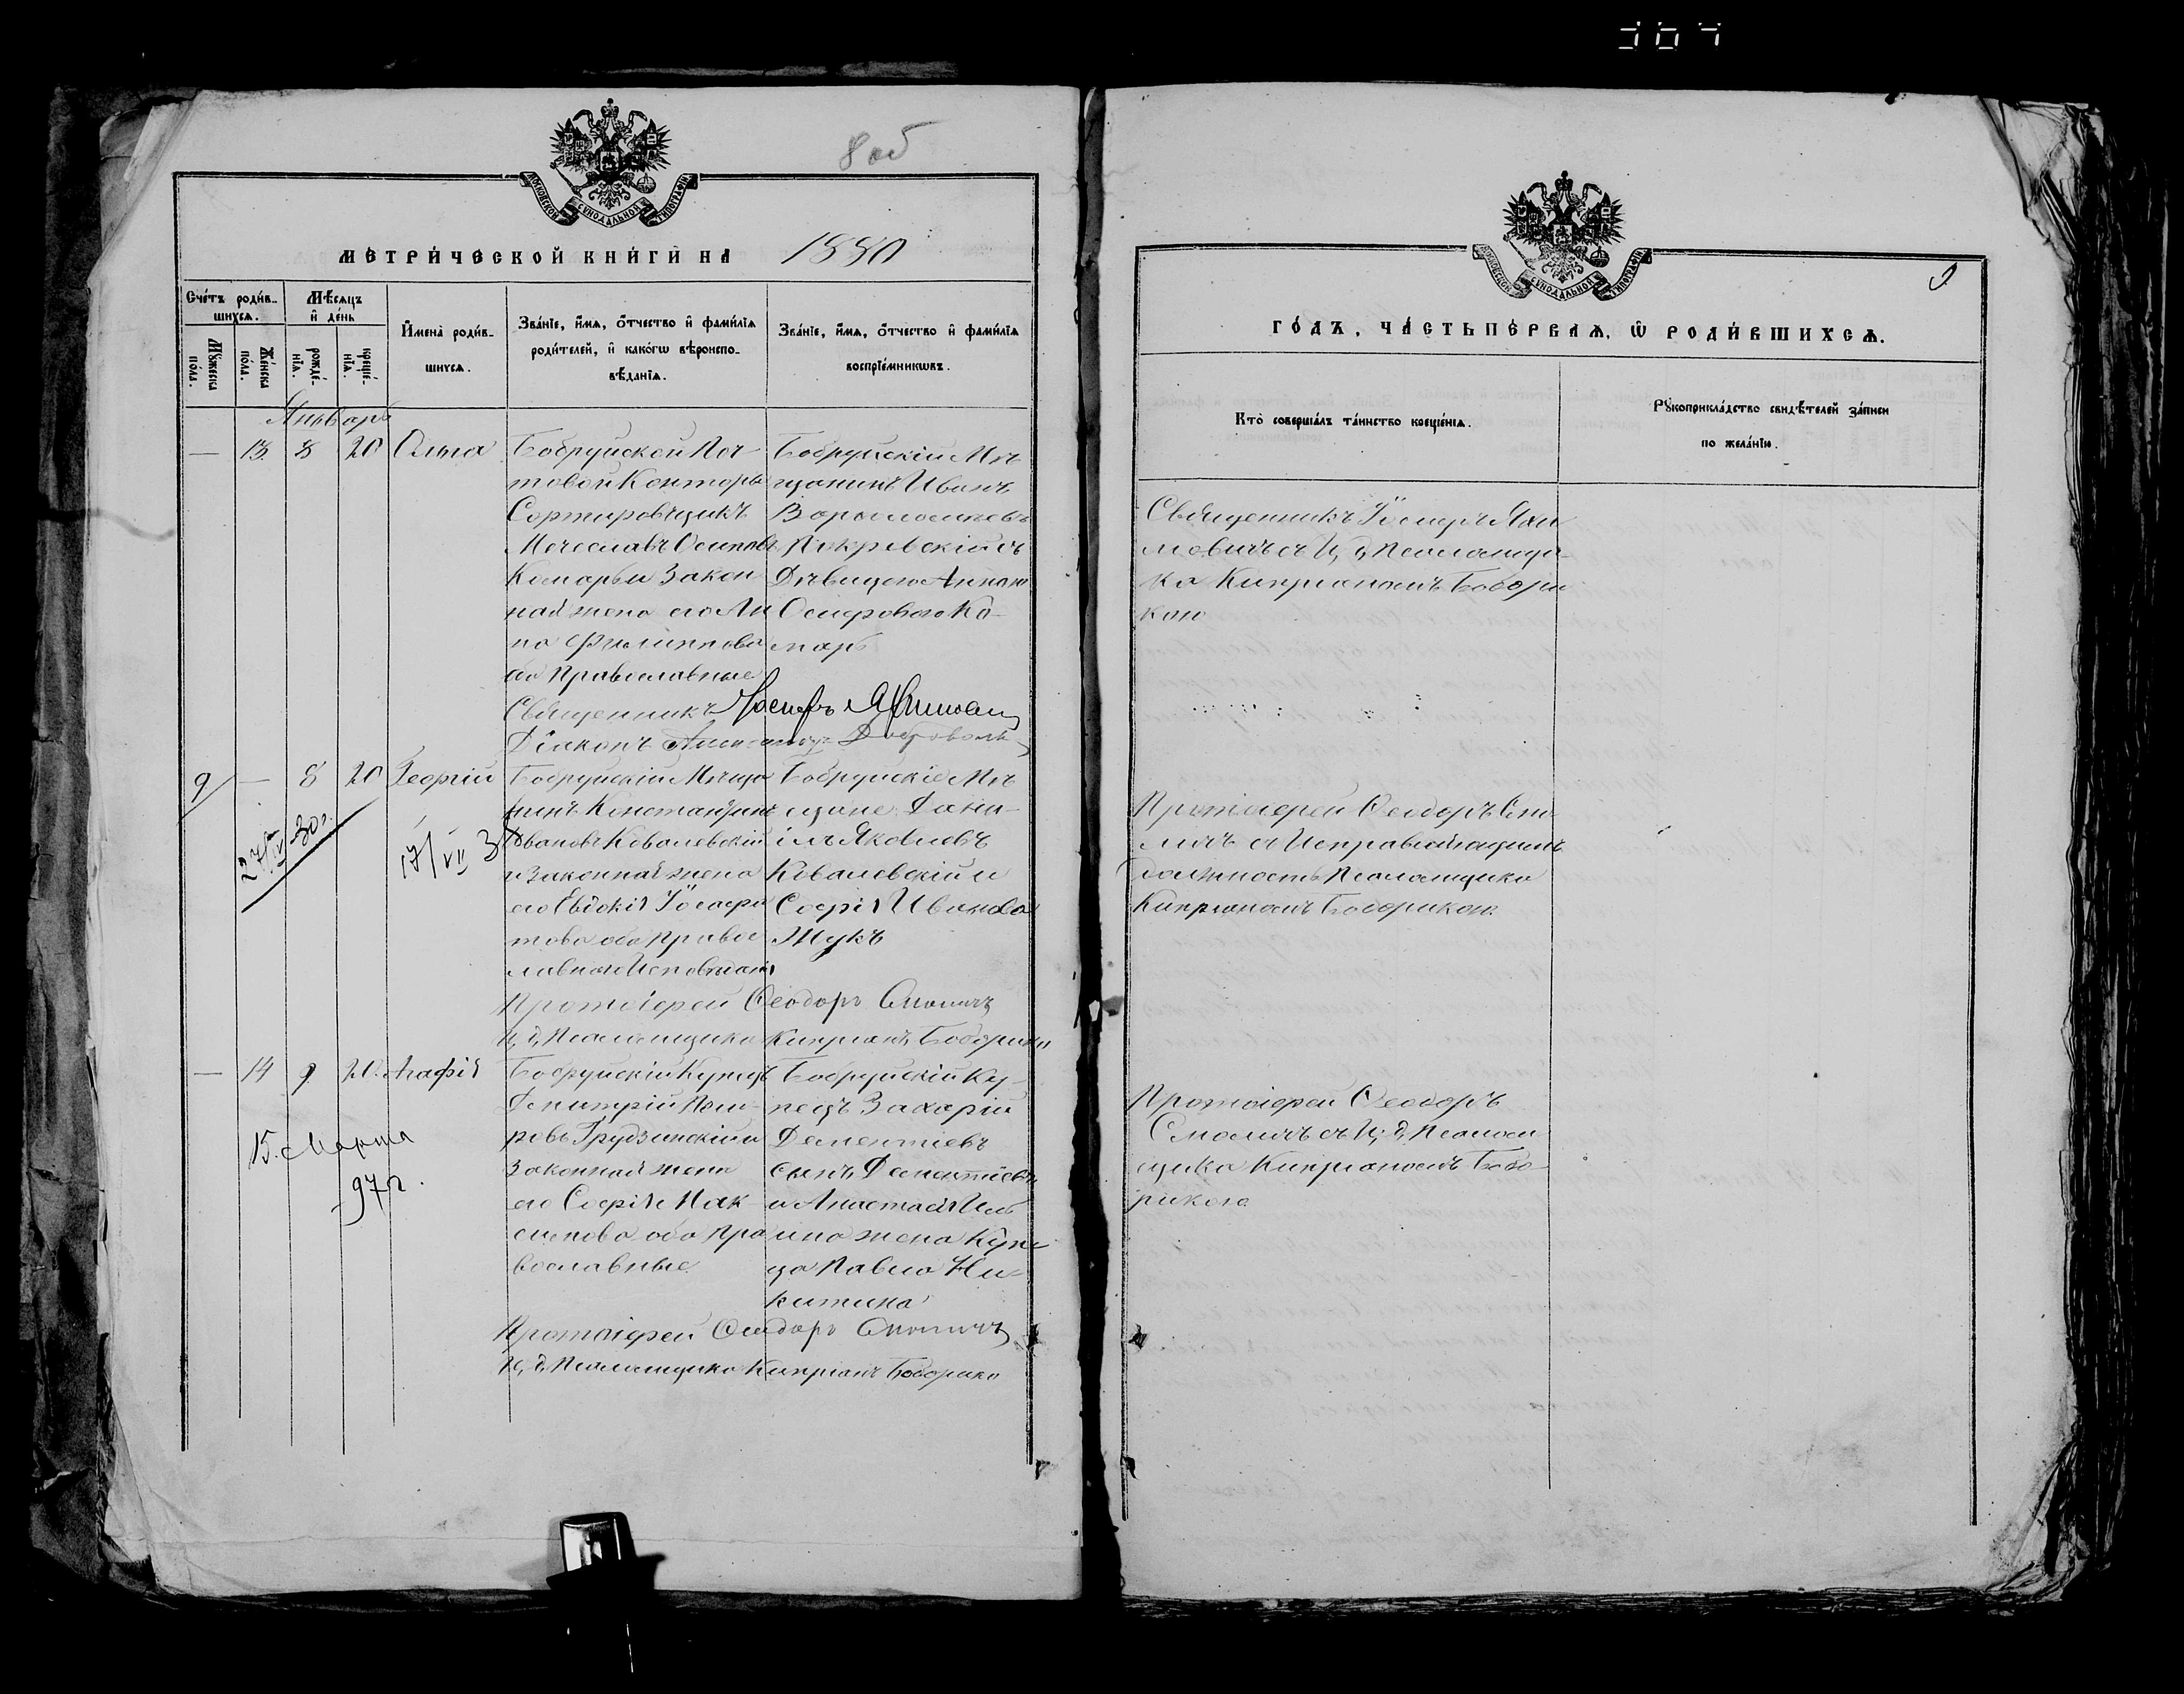 364
8 об
МОСКОВСКОЙ СУНОДАЛЬНОЙ ТИПОГРАФІИ
МЕТРИЧЕСКОЙ КНИГИ НА 1880
Счетъ родив-
шихся.
Мужеска
пола.
Женска
пола.
Мѣсяцъ
и день
рожде-
нія.
креще-
нія.
Имена родив-
шихся.
Званіе, имя, отчество и фамилія
родителей, и какогѡ вѣроиспо-
вѣданія.
Званіе, имя, отчество и фамилія
воспріемникѡвъ.
Январь
— 13. 8 20 Ольга
Бобруйской Поч-
товой Конторы
Сортировщикъ
Мечеславъ Осиповъ
Комаръ и закон
ная жена его Ан
на Филиппова
оба православные
Бобруйскій Мѣ
щанинъ Иванъ
Покровскій съ
Дѣвицею Анною
Осиповою Ко-
маръ
Священникъ Іосифъ
Діаконъ
9 — 8 20 Георгій
Бобруйскій Мѣща
нинъ Константинъ
Ивановъ Ковалевскій
и законная жена
его Евдокія Іосифо
това оба правос
лавнаго исповѣданія
Бобруйскіе Мѣ
щане Дани-
ілъ Яковлевъ
Ковалевскій и
Софія Иванова
Жукъ
27/IV-30 г.
17/VII 38
Протоіерей Ѳеодоръ Смоличъ
И, д, Псаломщика Кипріанъ Боборико
— 14 9 20. Агафія
Бобруйскій Купецъ
Димитрій
ровъ Грудзинскій и
законная жена
его Софія Мак-
симова оба пра
вославные.
Бобруйскій Ку-
пецъ Захарій
Дементіевъ
сынъ Дементіевъ
и Анастасія Иль
ина жена Куп-
ца Павла Ни-
китина
15. Марта
97 г.
Протоіерей Ѳеодоръ Смоличъ
И, д, Псаломщика Кипріанъ Боборико
9
МОСКОВСКОЙ СУНОДАЛЬНОЙ ТИПОГРАФІИ
ГОДЪ, ЧАСТЬ ПЕРВАЯ, Ѡ РОДИВШИХСЯ.
Кто совершалъ таинство крещенія.
Рукоприкладство свидѣтелей записи
по желанію.
Священникъ Іосифъ Яхи
мовичъ съ И, д, Псаломщи-
ка Кипріаномъ Бобори
кою
Протоіерей Ѳеодоръ Смо-
личъ съ Исправляющимъ
должность Псаломщика
Кипріаномъ Боборикою.
Протоіерей Ѳеодоръ
Смоличъ съ И, д, Псалом
щика Кипріаномъ Бобо-
рикою